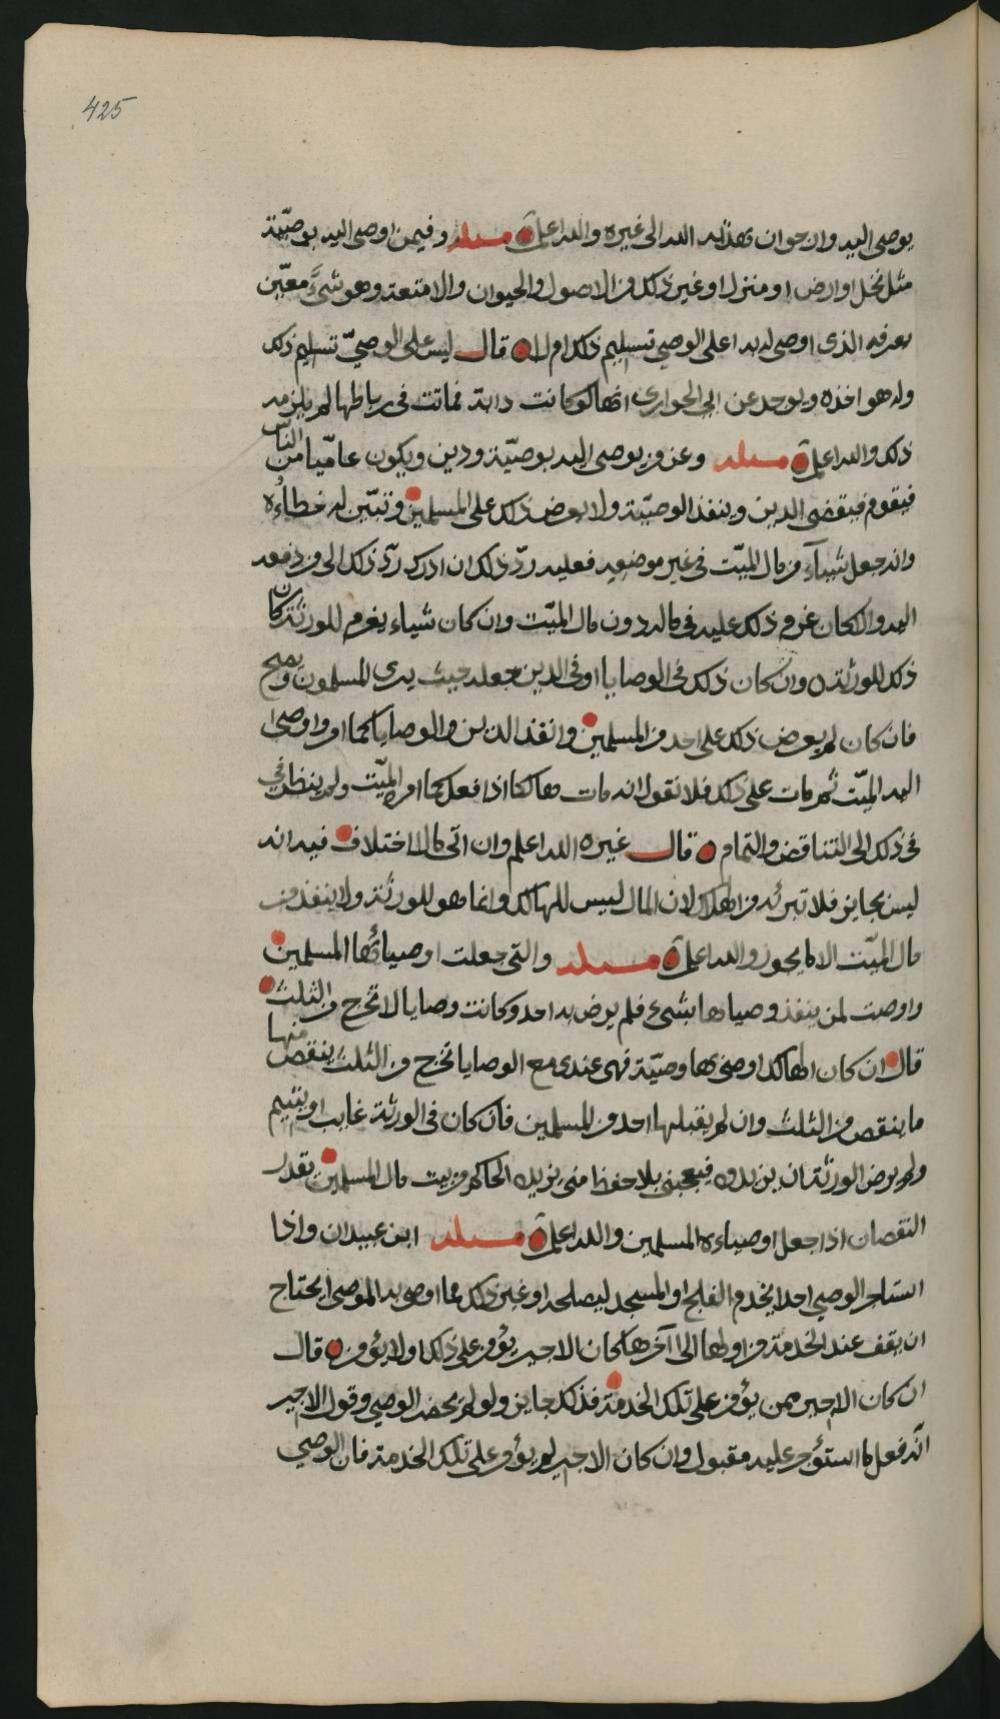 425
يوصي اليه وان جوان يهديه الله الى غيره والله اعلم مسئلة وفيمن اوصى اليه بوصيّة
مثل نخل او ارض او منزل او غير ذلك من الاصول والحيوان والامتعة وهو شيء معيّن
يعرفه الذى اوصى له به اعلى الوصي تسليم ذلك ام لا قال ليس على الوصيّ تسليم ذلك
وله هو اخذه ويوجد عن ابي الحواري انها لو كانت دابة فماتت في رباطها لم يلزمه
ذلك والله اعلم مسئلة وعن من يوصى اليه بوصيّة ودين ويكون عامّيا من الناس
فيقوم فيقضى الدين وينفذ الوصيّة ولا يعرض ذلك على المسلمين وتبيّن له خطاؤه
وانه جعل شيئآ من مال الميّت في غير موضعه فعليه ردّ ذلك ان ادرك ردّ ذلك الى من دفعه
اليه والا كان غرم ذلك عليه في ماله دون مال الميّت وان كان شياء يغرم للورثة كان
ذلك للورثة وان كان ذلك في الوصايا او في الدين جعله حيث يرى المسلمون ويصح
فان كان لم يعرض ذلك على احد من المسلمين وانفذ الدين والوصايا كما امر واوصى
اليه الميّت ثم مات على ذلك فلا نقول انه مات هالكا اذا فعل كما امره الميّت ولم ينظر في
في ذلك الى التناقض والتمام قال غيره الله اعلم وان اتى مال الاختلاف فيه انه
ليس بجايز فلا تبرئه من الهلاك لان المال ليس للهالك وانما هو للورثة ولا ينفذ من
مال الميّت الا ما يجوز والله اعلم مسئلة والتى جعلت اوصيائها المسلمين
واوصت لمن ينفذ وصياها بشيء فلم يرض به احد وكانت وصايا لا تخرج من الثلث
قال ان كان الهالك اوصى بها وصيّة فهى عندى مع الوصايا تخرج من الثلث ينقص منها
ما ينقص من الثلث وان لم يقبلها احد من المسلمين فان كان في الورثة غايب او يتيم
ولم يرض الورثة ان يزيدوه فيعجبنى بلا حفظ منى يزيده الحاكم من بيت مال المسلمين بقدر
النقصان اذا جعل اوصياءه المسلمين والله اعلم مسئلة ابن عبيدان واذا
استاجر الوصي احدا يخدم الفلج او المسجد ليصلحه او غير ذلك مما اوصى به الموصى ايحتاج
ان يقف عند الخدمة من اولها الى آخرها كان الاجير يؤمن على ذلك اولا يؤمن قال
ان كان الاجير ممن يؤمن على تلك الخدمة فذلك جايز ولو لم يحضر الوصي وقول الاجير
انّه فعل ما استؤجر عليه مقبول وان كان الاجير لم يؤمن على تلك الخدمة فان الوصي